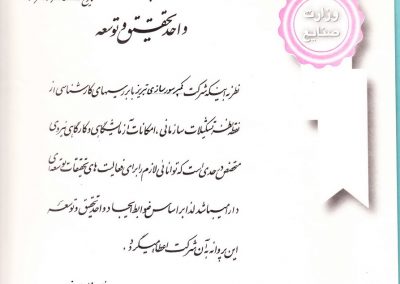 واحد تحقیق و توسعه
وزارت
صنایع
نظر به اینکه شرکت کمپرسورسازی تبریز با بررسیهای کارشناسی از
نقطه نظر تشکیلات سازمانی، امکانات آزمایشگاهی و کارگاهی نیروی
متخصص در حدی است که توانائی لازم را برای فعالیت های تحقیقات توسعه‌ای
دارا میباشد لذا بر اساس ضوابط ایجاد واحد تحقیق و توسعه
این پروانه به آن شرکت اعطا میگردد.